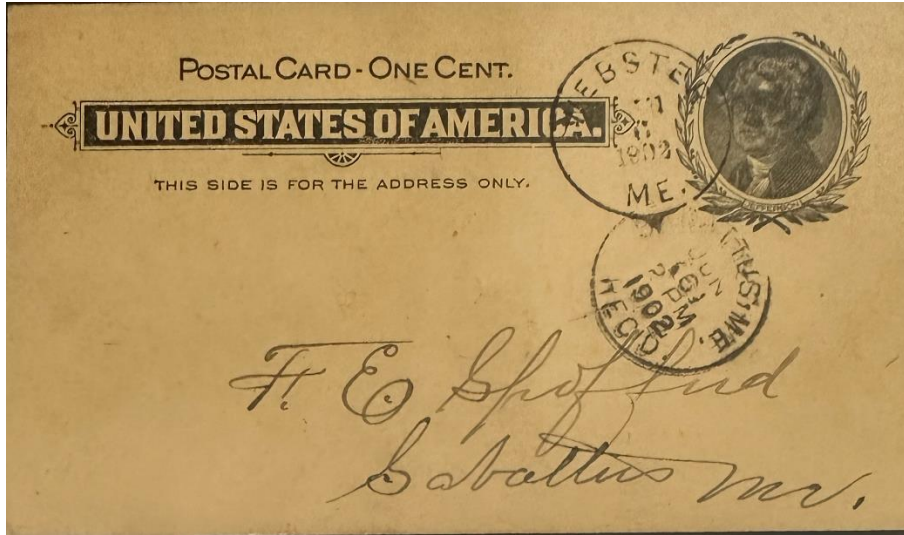 POSTAL CARD - ONE CENT.
UNITED STATES OF AMERICA.
THIS SIDE IS FOR THE ADDRESS ONLY.
JEFFERSON
WEBSTER
1902
ME.
JUN
2 PM
1902
REC'D.
F. E. Spofford
Sabattus Me.